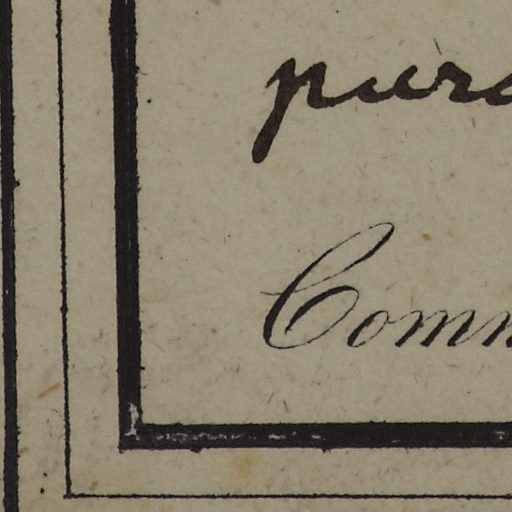 pura
Comm